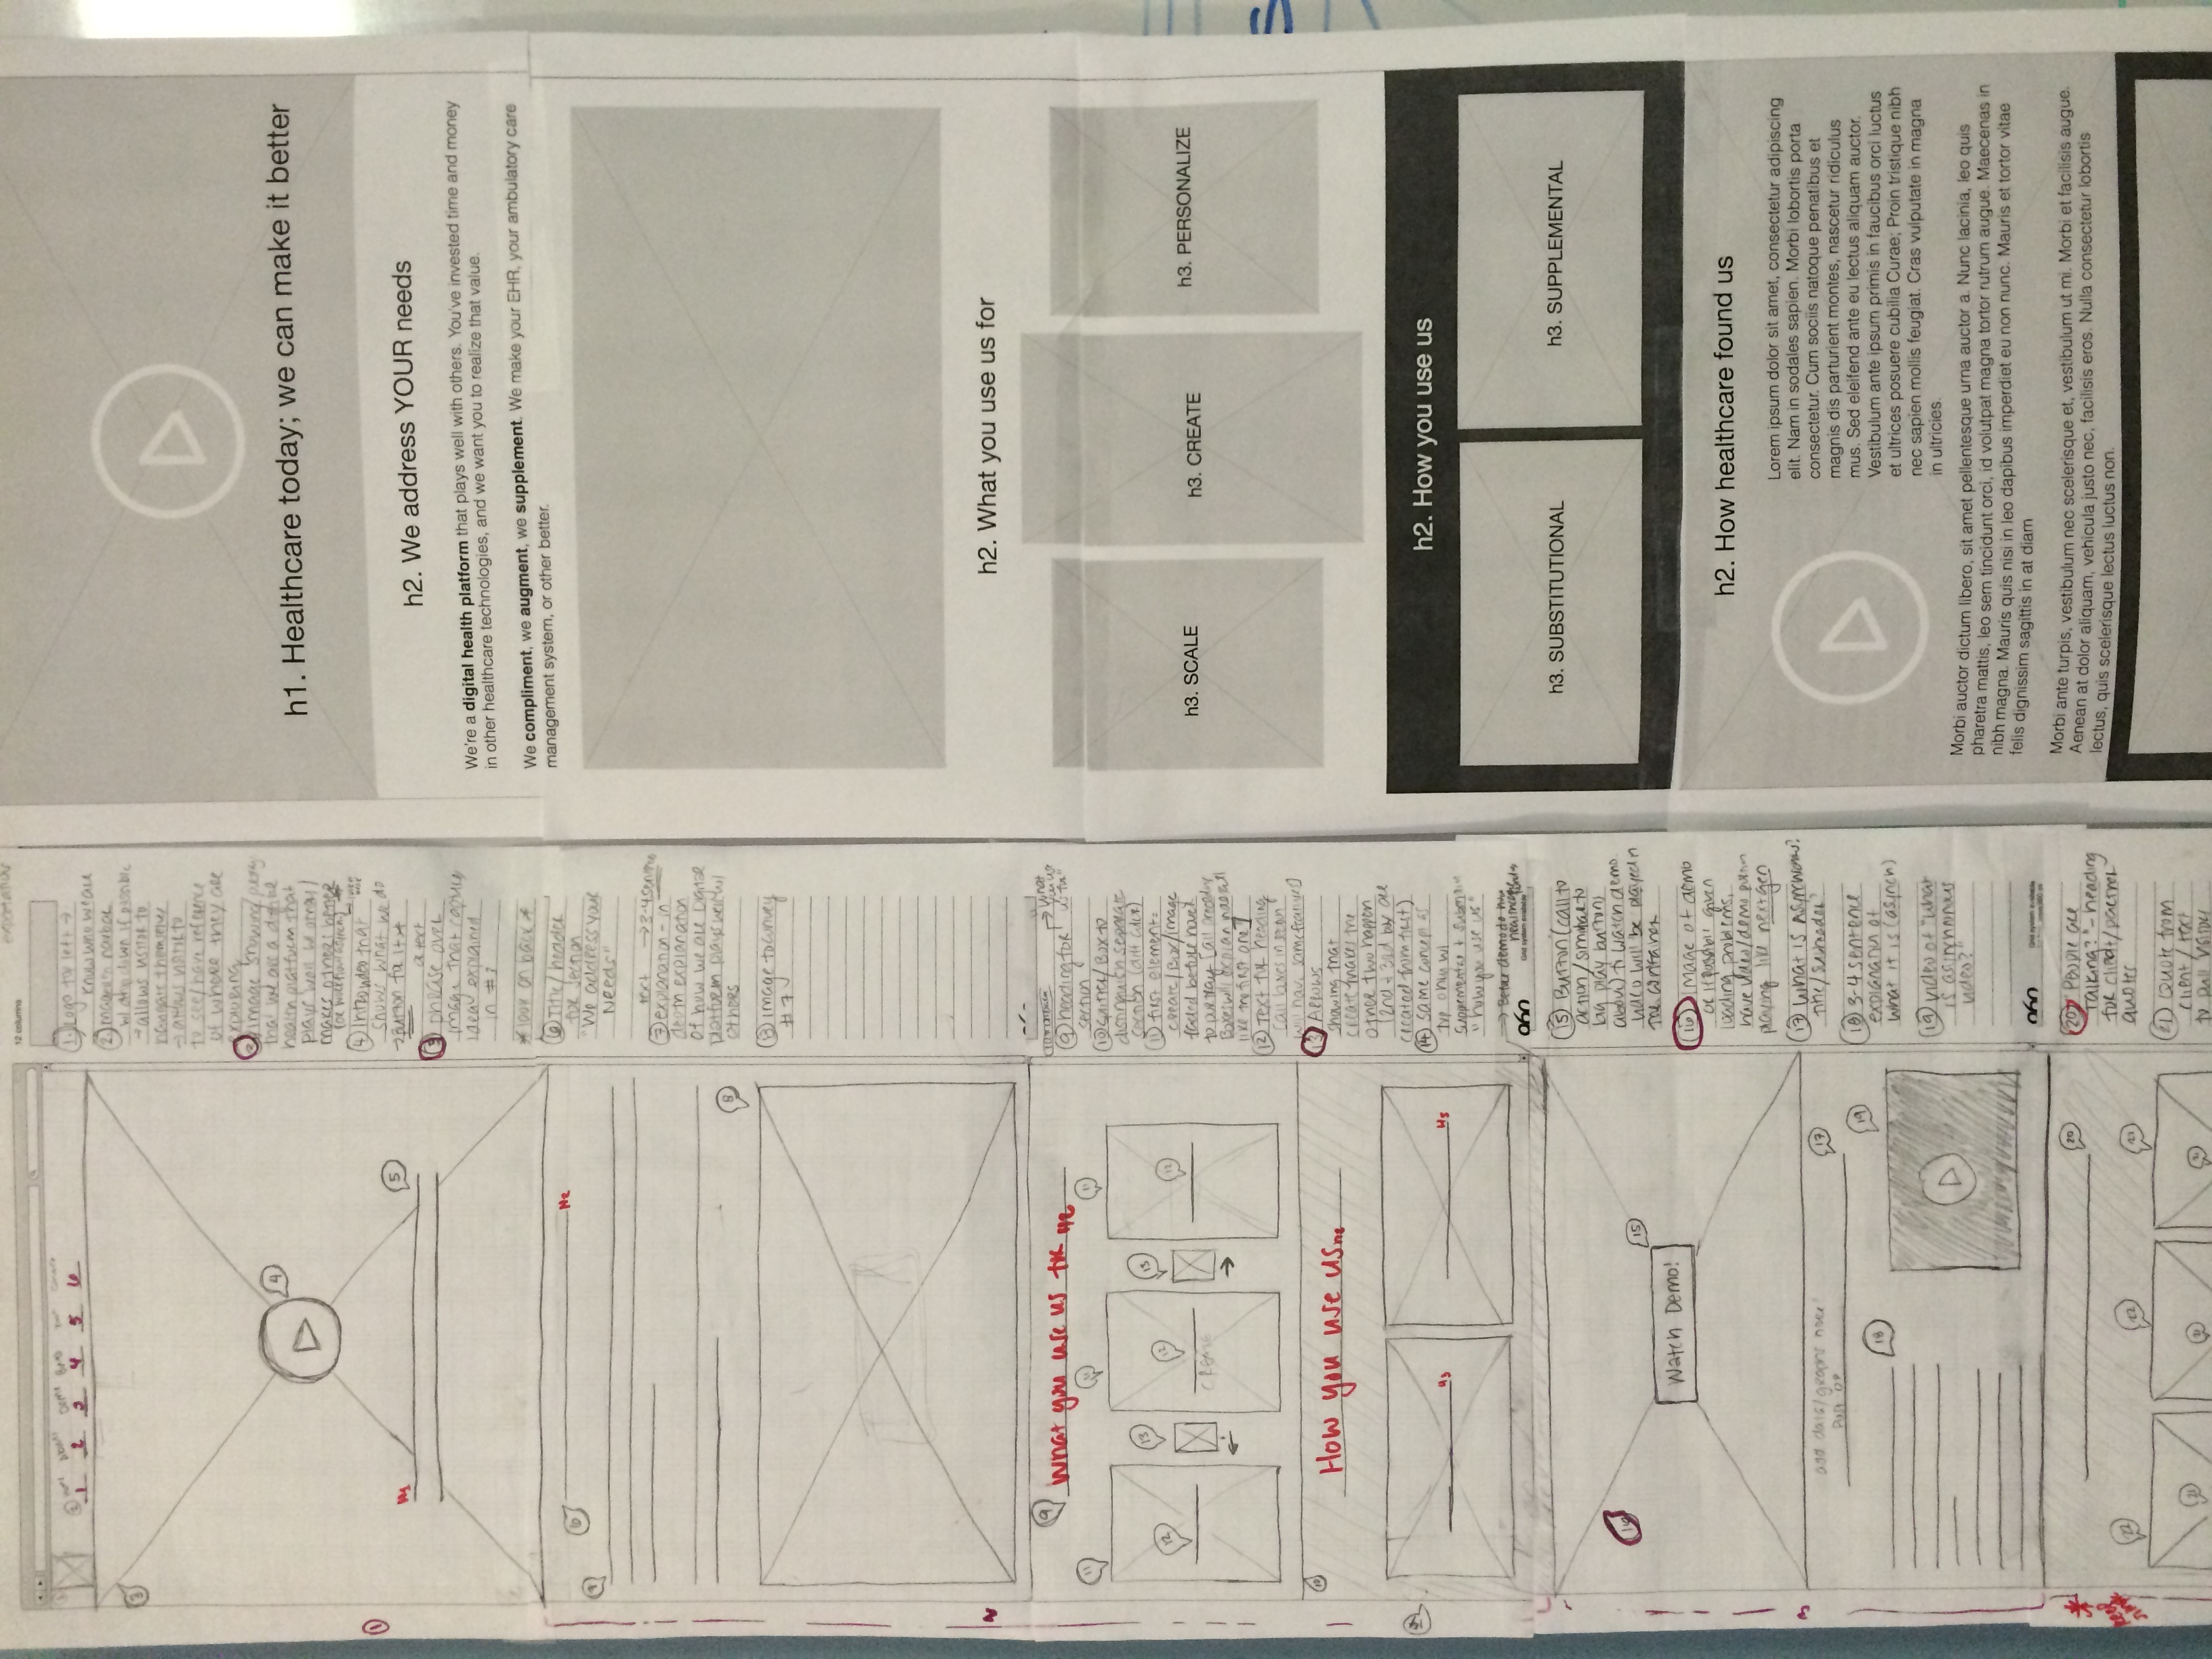 12 columns
1 2 3 4 5 6
1. Logo top left →
know who we are
2.
w/ drop down if possible
→ allows visitor to
navigate themselves
to see/have reference
of where they are
exploring
image showing/
that we are a digital
health platform that
plays well w others/
makes others better
4 Intro video that
shows what we do
→ Button for it
a text
5 phrase over
image that captures
idea explained
in #3
*look on back*
6 Title/header
for section
"We address your
Needs"
text → 3-4 sentences
7 explanation - in
depth explanation
of how we are Digital
platform plays well w/
others
8 image to convey
#7
3
4
H1
5
1
6
H2
7
8
2
9 What you use us for H2
11 11 11
12 13 12 13 12
CREATE
← →
10
How you use us H2
14
H3 H3
9 heading for
section
"What
you use
us for"
10 splitter/Box to
distinguish separate
section (diff color)
11 first element=
create/Box/image
faded before hover
to portray [all preceding
Boxes will explain
like the first one]
12 Text for heading
(all boxes in
will have same features)
13 Arrows
showing that
create makes the
other two happen
(2nd + 3rd box are
created from first)
14 same concept as
top only w/
"how you use us"
960
Grid system available
16
15
Watch Demo!
3
15 Button (call to
action/similar to
big play buttons
above) to watch demo.
video will be played in
the container
16 Image of demo
or if possible given
loading problems,
have video/demo
playing like nextgen
17 What is Asynchronous?
title/subheader?
18 3-4 sentence
explanation of
what it is (asynch)
19 video of "what
is asynchronous
video?"
add data/graphs here!
17
18
19
960
20
22 22 22
21 21 21
20 "People are
Talking?" - heading
for client/partner
quotes
21 Quote from
client/text
to pull visitor
h1. Healthcare today; we can make it better
h2. We address YOUR needs
We're a digital health platform that plays well with others. You've invested time and money
in other healthcare technologies, and we want you to realize that value.
We compliment, we augment, we supplement. We make your EHR, your ambulatory care
management system, or other better.
h2. What you use us for
h3. SCALE
h3. CREATE
h3. PERSONALIZE
h2. How you use us
h3. SUBSTITUTIONAL
h3. SUPPLEMENTAL
h2. How healthcare found us
Lorem ipsum dolor sit amet, consectetur adipiscing
elit. Nam in sodales sapien. Morbi lobortis porta
consectetur. Cum sociis natoque penatibus et
magnis dis parturient montes, nascetur ridiculus
mus. Sed eleifend ante eu lectus aliquam auctor.
Vestibulum ante ipsum primis in faucibus orci luctus
et ultrices posuere cubilia Curae; Proin tristique nibh
nec sapien mollis feugiat. Cras vulputate in magna
in ultricies.
Morbi auctor dictum libero, sit amet pellentesque urna auctor a. Nunc lacinia, leo quis
pharetra mattis, leo sem tincidunt orci, id volutpat magna tortor rutrum augue. Maecenas in
nibh magna. Mauris quis nisi in leo dapibus imperdiet eu non nunc. Mauris et tortor vitae
felis dignissim sagittis in at diam
Morbi ante turpis, vestibulum nec scelerisque et, vestibulum ut mi. Morbi et facilisis augue.
Aenean at dolor aliquam, vehicula justo nec, facilisis eros. Nulla consectetur lobortis
lectus, quis scelerisque lectus luctus non.